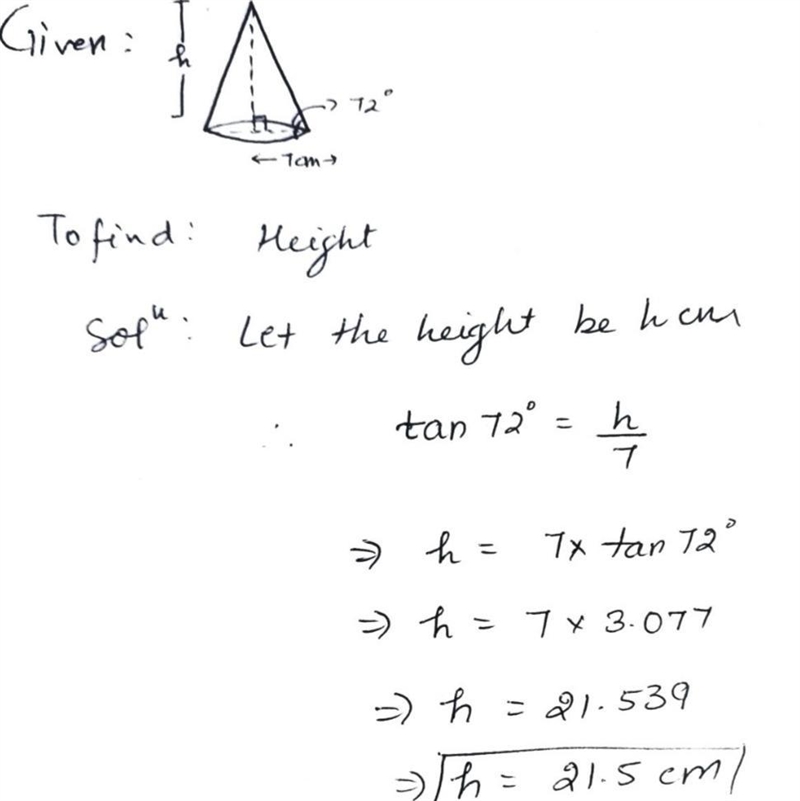 Given :
h
72°
←7cm→
To find: Height
Solⁿ: Let the height be h cm
∴ tan 72° = h/7
⇒ h = 7× tan 72°
⇒ h = 7 × 3.077
⇒ h = 21.539
⇒ h = 21.5 cm